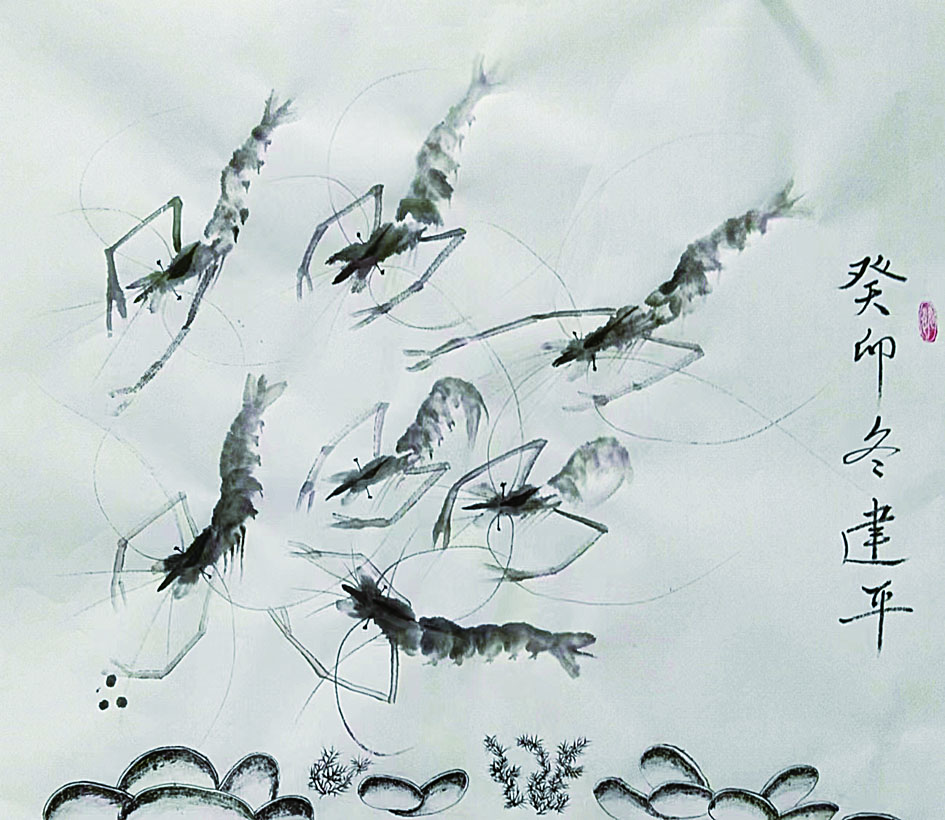 癸卯冬建平